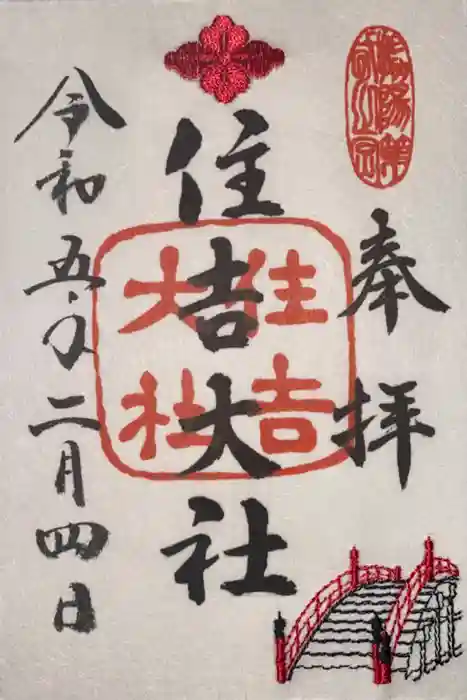 奉拝
住吉大社
住吉
大社
令和五年二月四日